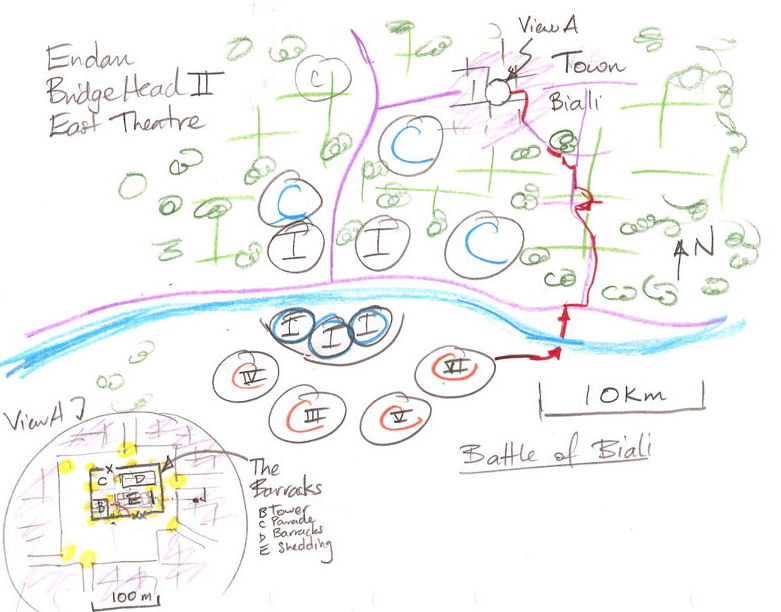 Endan
BridgeHead II
East Theatre
View A
Town
Bialli
C
C
C
I
I
C
N
I
I
I
IV
III
V
VI
10Km
Battle of Biali
View A
The
Barracks
B Tower
C Parade
D Barracks
E Shedding
X
C
D
B
E
XX
100m